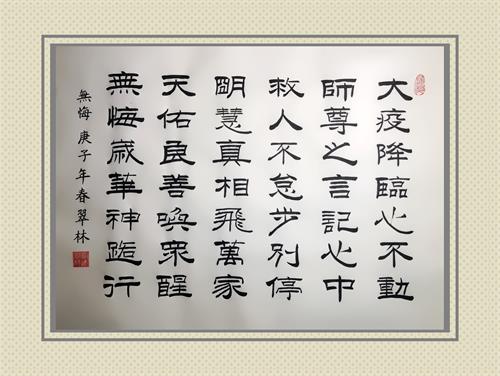 大疫降臨心不動
師尊之言記心中
救人不怠步別停
明慧真相飛萬家
天佑良善喚眾醒
無悔歲華神路行
無悔 庚子年春翠林